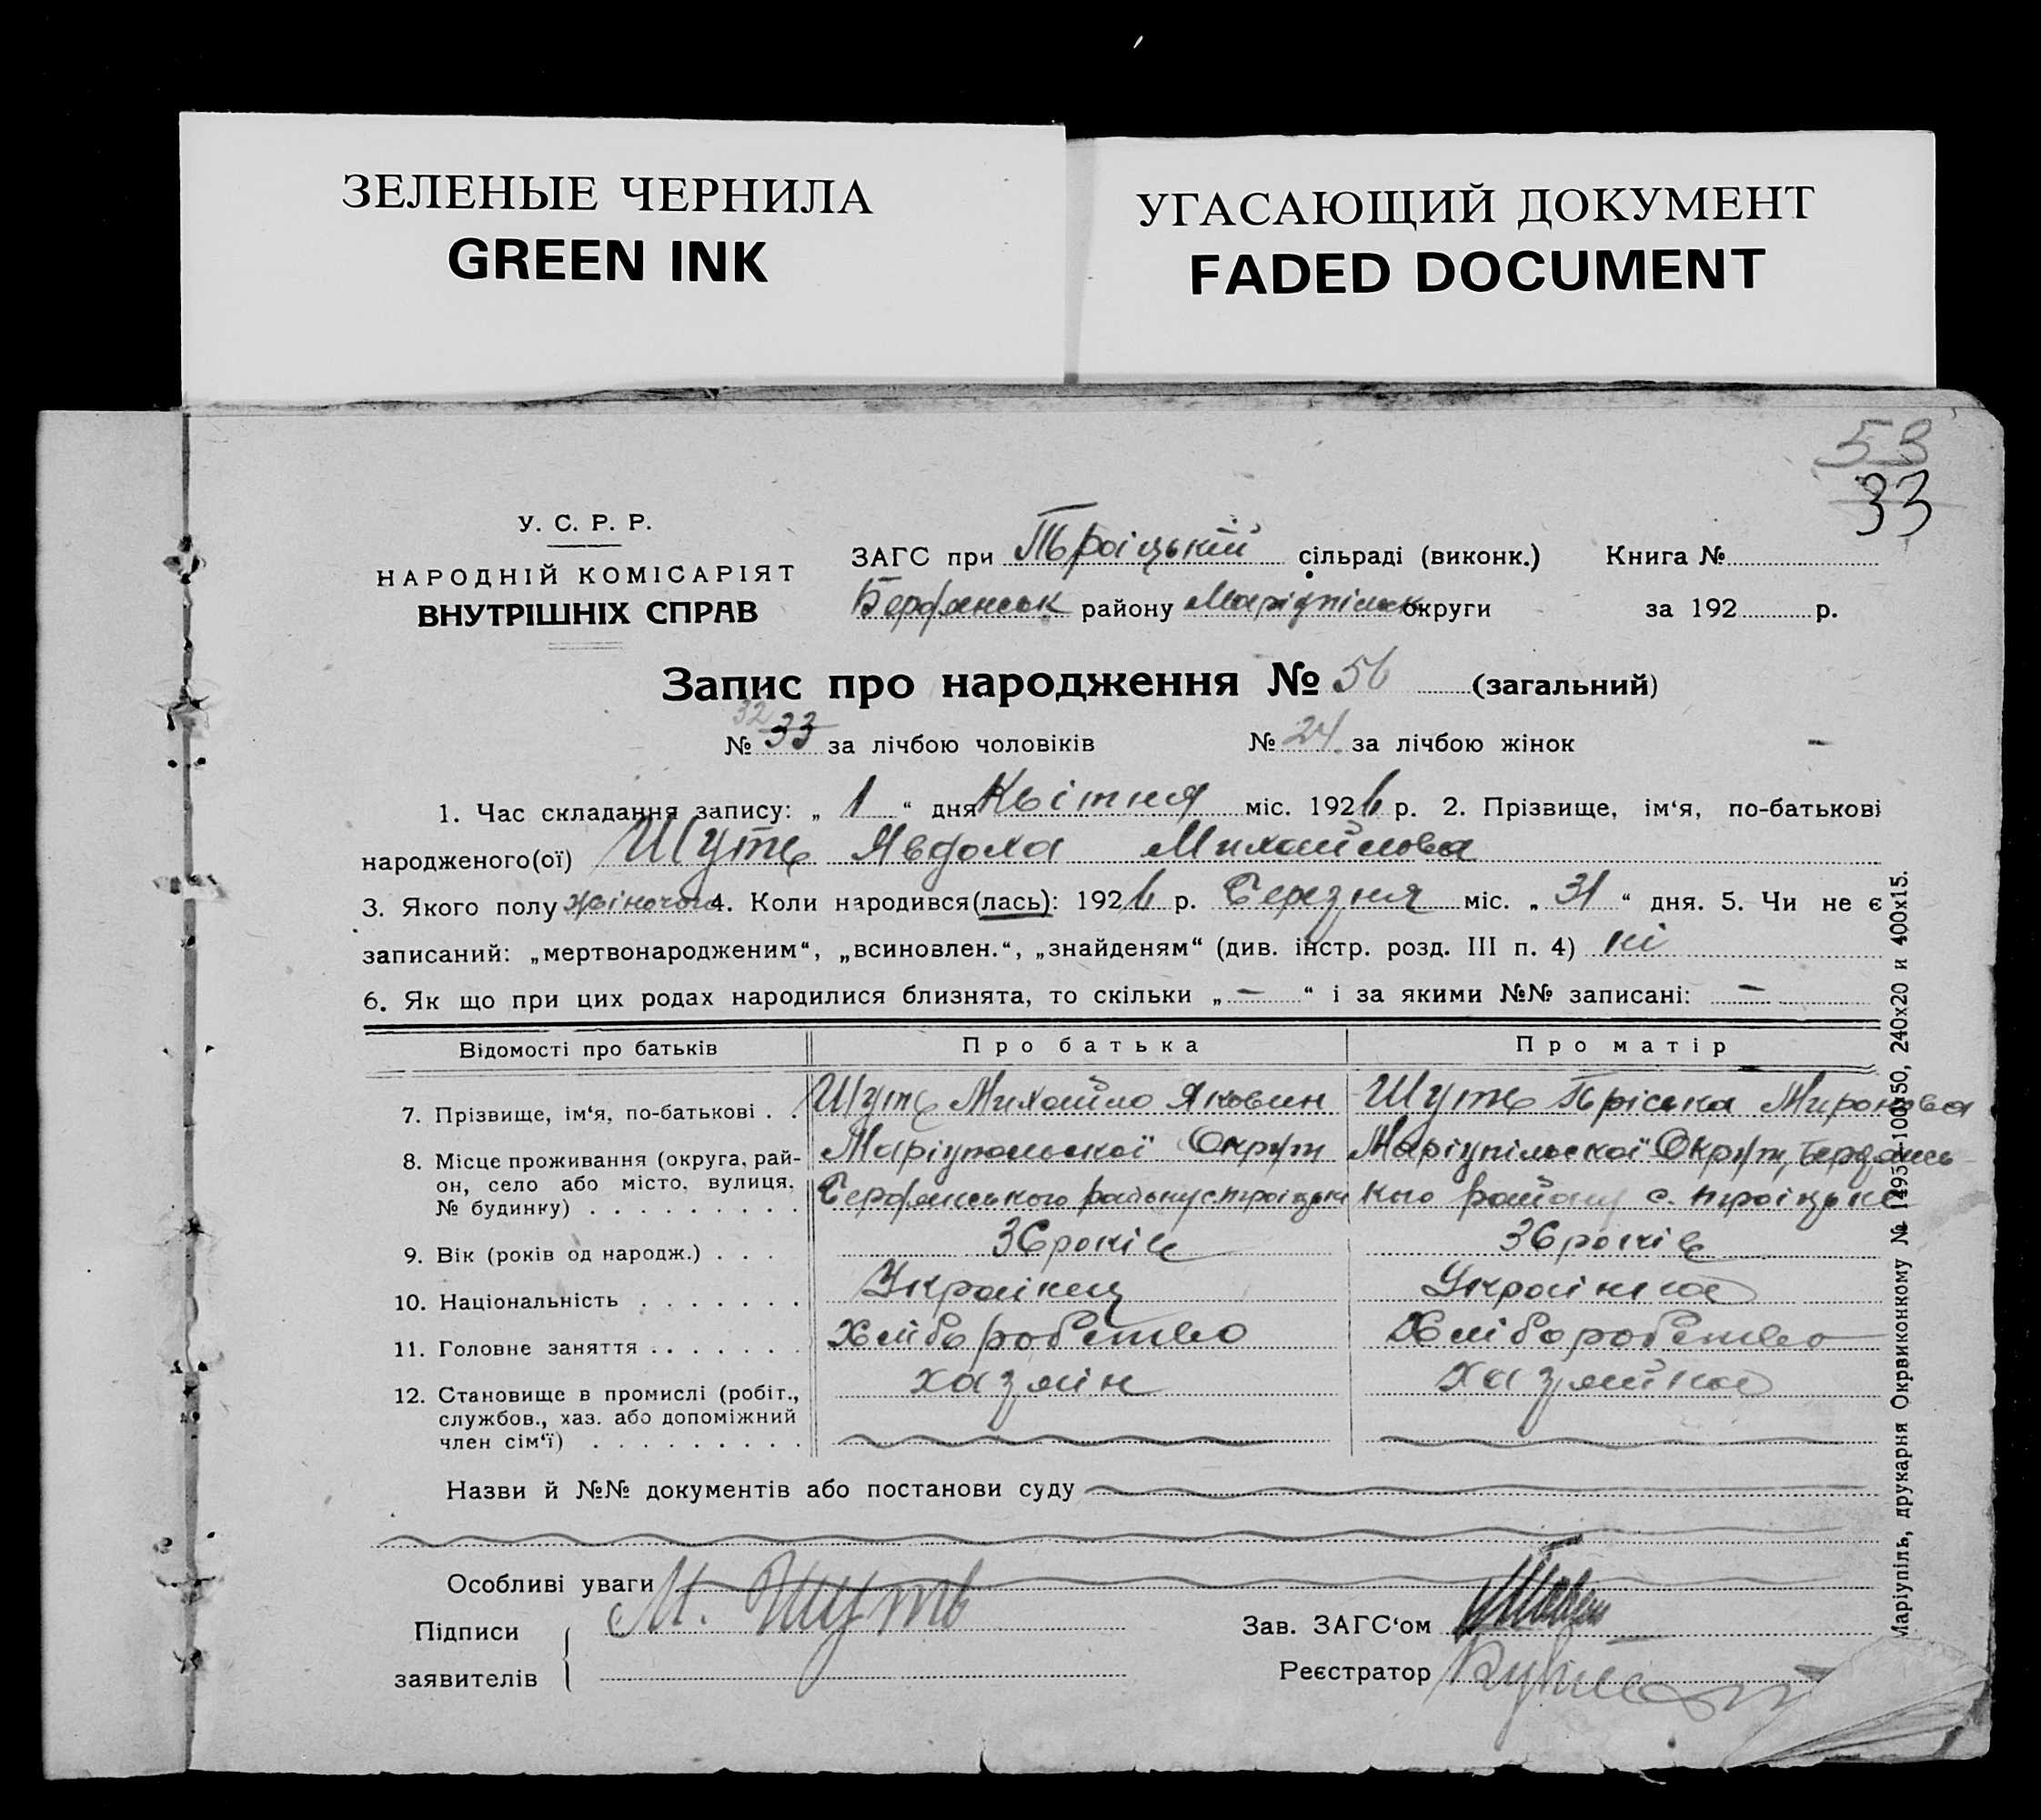 ЗЕЛЕНЫЕ ЧЕРНИЛА
GREEN INK
УГАСАЮЩИЙ ДОКУМЕНТ
FADED DOCUMENT
53
33
У. С. Р. Р.
НАРОДНІЙ КОМІСАРІЯТ
ВНУТРІШНІХ СПРАВ
ЗАГС при Троіцькій сільраді (виконк.) Книга №
Бердянськ району Маріупільск округи за 192 р.
Запис про народження № 56 (загальний)
32
№ 33 за лічбою чоловіків № 24 за лічбою жінок
1. Час складання запису: „ 1 “ дня Квітня міс. 1926 р. 2. Прізвище, ім‘я, по-батькові
народженого(ої) Шуть Явдоха Михайлова
3. Якого полу жіночого 4. Коли народився(лась): 1926 р. Березня міс. „ 31 “ дня. 5. Чи не є
записаний: „мертвонародженим“, „всиновлен.“, „знайденям“ (див. інстр. розд. III п. 4) ні
6. Як що при цих родах народилися близнята, то скільки „ — “ і за якими №№ записані: —
Відомості про батьків Про батька Про матір
7. Прізвище, ім‘я, по-батькові . . Шуть Михайло Яковин Шуть Пріська Миронова
8. Місце проживання (округа, рай- Маріупольскої Округи Маріупільскої Округи, Бердянсь
он, село або місто, вулиця, Бердянського району с. Троіцьке кого району с. Троіцьке
№ будинку) . . . . . . . . .
9. Вік (років од народж.) . . . 36 років 36 років
10. Національність . . . . . . . Українец Українка
11. Головне заняття . . . . . . . Хліборобство Хліборобство
12. Становище в промислі (робіт., хазяін хазяйка
службов., хаз. або допоміжний
член сім‘ї) . . . . . . . . .
Назви й №№ документів або постанови суду
Особливі уваги
Підписи М. Шуть Зав. ЗАГС‘ом
заявителів Реєстратор
Маріупіль, друкарня Окрвиконкому № 1495—100х50, 240х20 и 400х15.